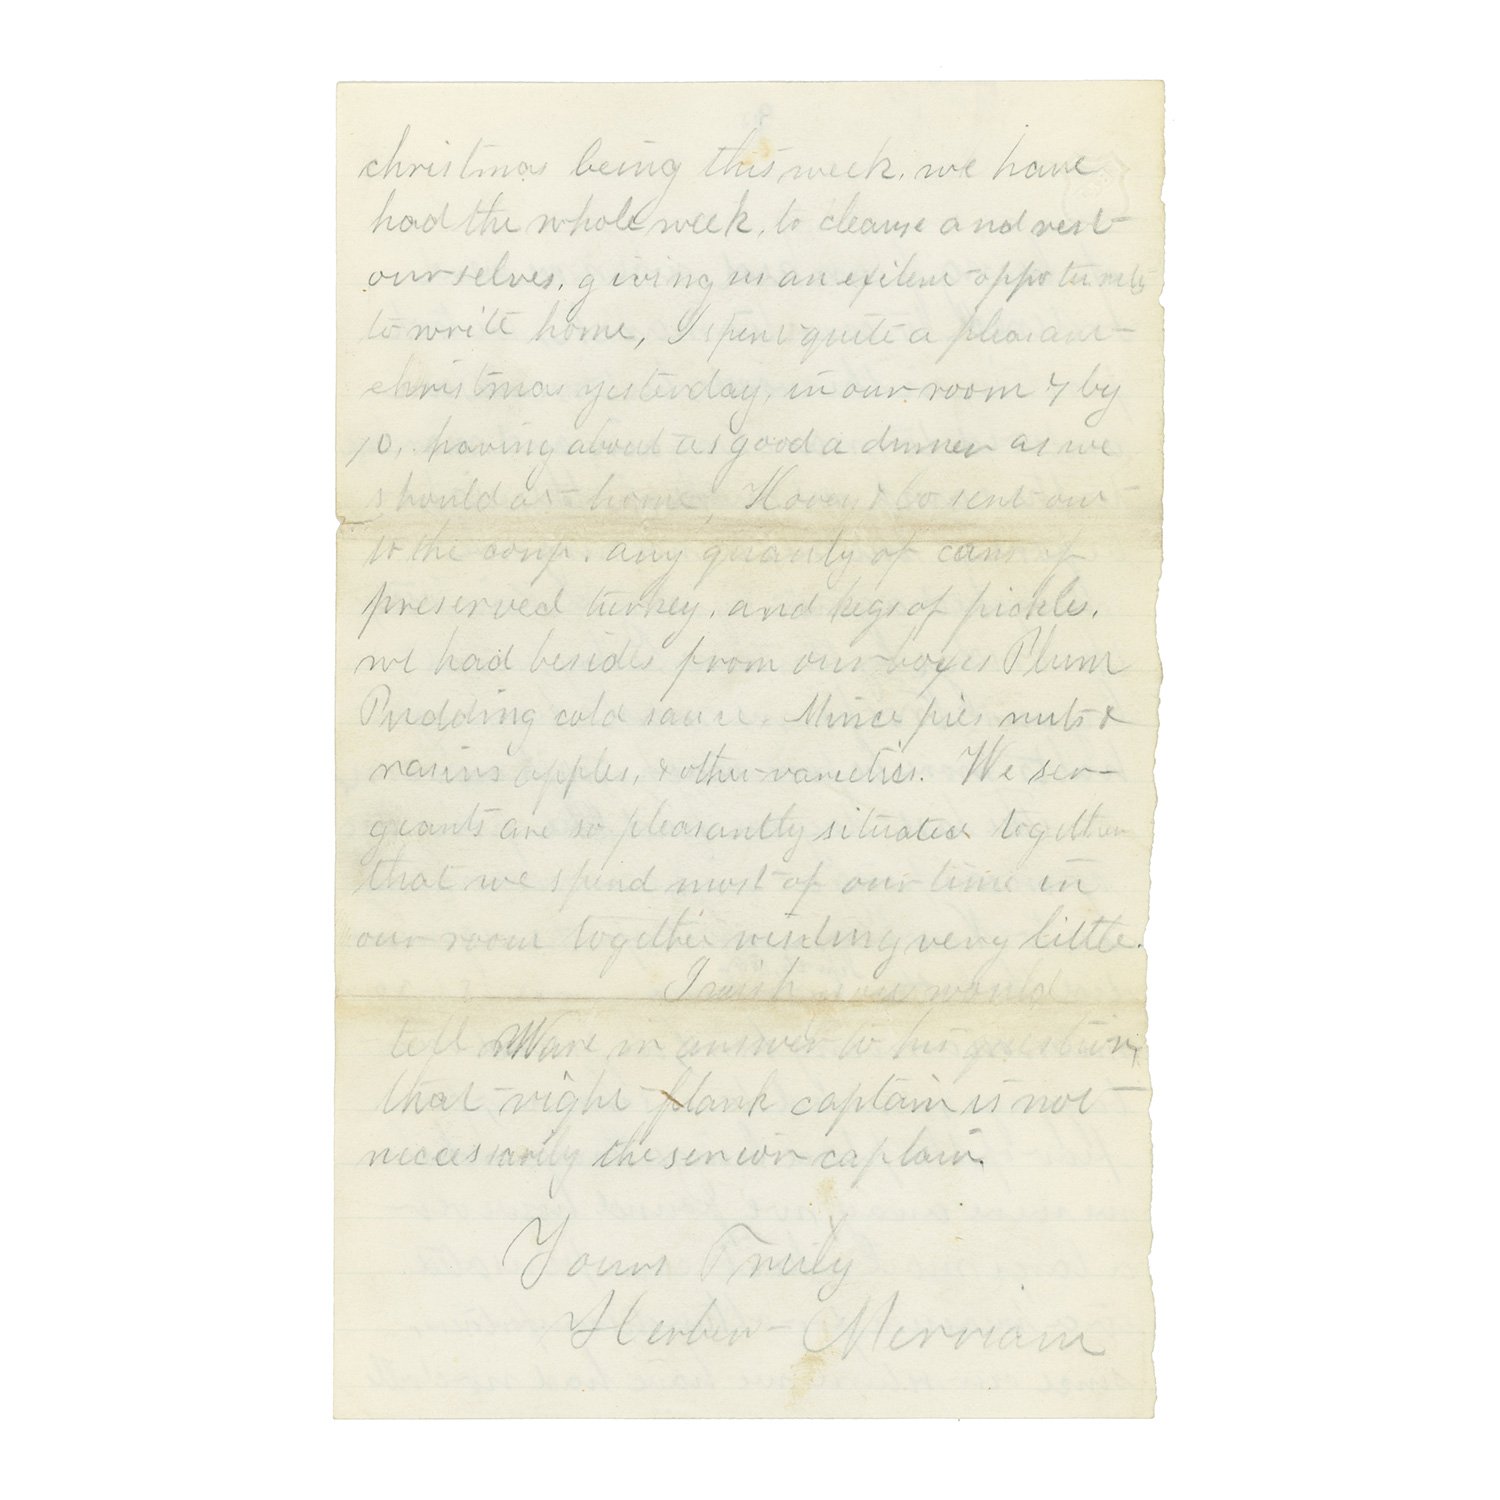 christmas being this week. we have
had the whole week, to cleanse and rest
ourselves, giving us an exilent opportunity
to write home, I spent quite a pleasant
christmas yesterday, in our room 7 by
10, having about as good a dinner as we
should at home, Hovey & Co sent out
to the comp. any quantity of cans of
preserved turkey, and kegs of pickles,
we had besides from our boxes Plum
Pudding cold sauce. Mince pies nuts &
rasins apples, & other varieties. We ser-
geants are so pleasantly situated together
that we spend most of our time in
our room together visiting very little.
I wish you would
tell Ware in answer to his question,
that right flank captain is not
neccessarily the senior captain.
Yours Truly
Herbert Merriam